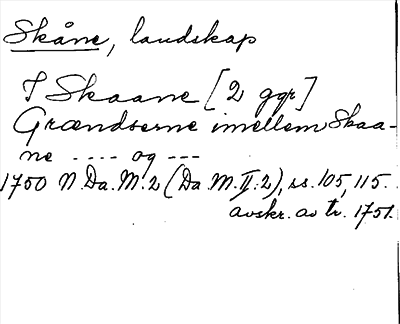 Skåne, landskap
I Skaane [2 ggr]
Grændserne imellem Skaa-
ne .... og ---
1750 N.Da.M.2 (Da.M.II:2), ss. 105, 115.
avskr. av tr. 1751.